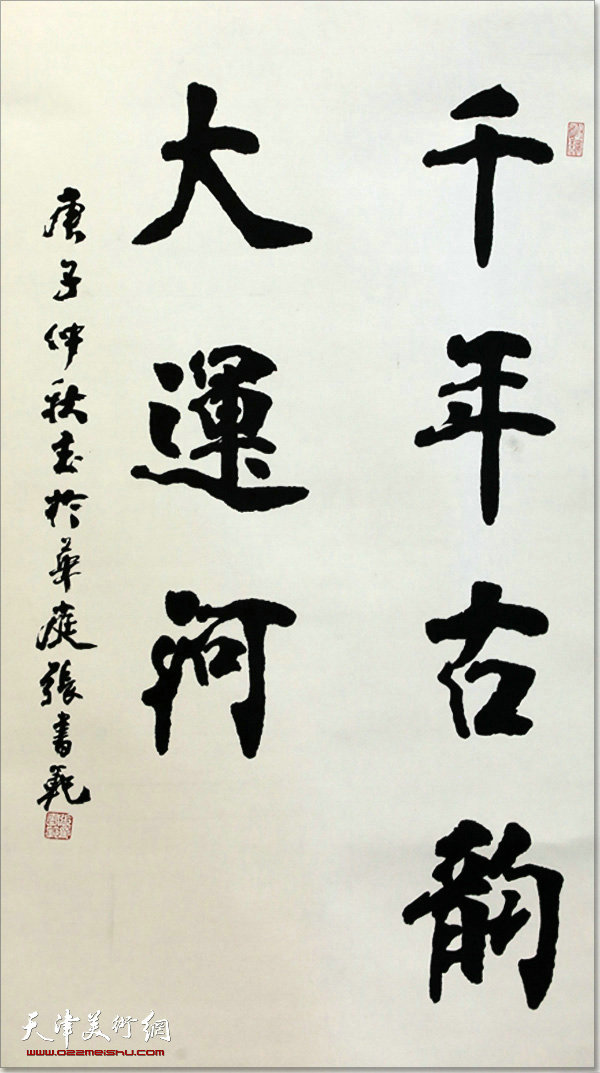 千年古韵
大運河
庚子仲秋書於華庭張書範
天津美術網
www.022meishu.com